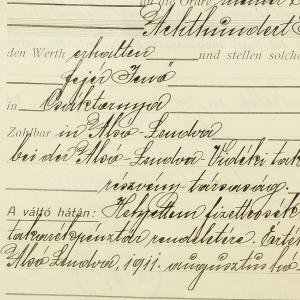 an die Ordre
Achthundert
den Werth erhalten und stellen solche
Fejér Jenő
in Csáktornya
Zahlbar in Alsó-Lendva
bei der Alsó-Lendva-Vidéki tak
részvény-társaság.
A váltó hátán: Helyettem fizettessék
takarékpénztár rendeletére. Érték
Alsó Lendva, 1911. augusztus hó